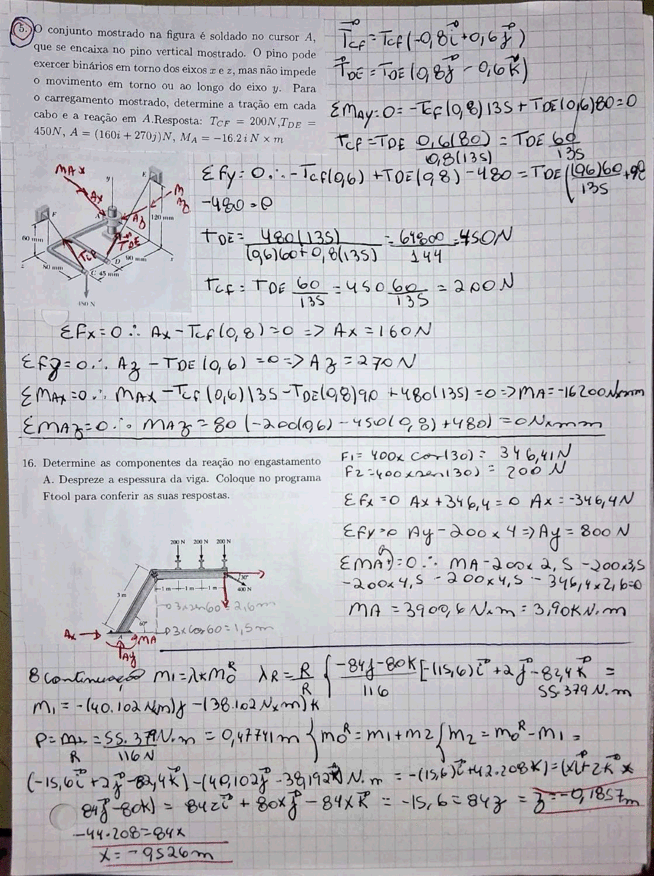 5. O conjunto mostrado na figura é soldado no cursor A,
que se encaixa no pino vertical mostrado. O pino pode
exercer binários em torno dos eixos x e z, mas não impede
o movimento em torno ou ao longo do eixo y. Para
o carregamento mostrado, determine a tração em cada
cabo e a reação em A.Resposta: T_CF = 200N,T_DE =
450N, A = (160i + 270j)N, M_A = −16.2 i N × m
T_CF = T_CF(-0,8i+0,6j)
T_DE = T_DE(0,8j - 0,6k)
ΣMAy=0 = -T_CF(0,8)135 + T_DE(0,6)80=0
T_CF = T_DE 0,6(80)/0,8(135) = T_DE 60/135
ΣFy=0 ∴ -T_CF(0,6) + T_DE(0,8) - 480 = T_DE
-480=0
T_DE = 480(135)/(0,6)60+0,8(135) = 64800/144 = 450N
T_CF = T_DE 60/135 = 450 60/135 = 200N
MAx
Ax
Az
y
E
F
120 mm
60 mm
80 mm
C
45 mm
D
90 mm
z
x
T_CF
T_DE
480 N
ΣFx=0 ∴ Ax - T_CF(0,8)=0 => Ax=160N
ΣFz=0 ∴ Az - T_DE(0,6)=0 => Az=270N
ΣMAx=0 ∴ MAx - T_CF(0,6)135 - T_DE(0,8)90 + 480(135)=0 => MA=-16200Nxmm
ΣMAz=0 ∴ MAz = 80(-200(0,6) - 450(0,8) + 480) = 0Nxmm
16. Determine as componentes da reação no engastamento
A. Despreze a espessura da viga. Coloque no programa
Ftool para conferir as suas respostas.
F1= 400x cos(30) = 346,41N
F2=400xsen(30) = 200N
ΣFx=0 Ax+346,4=0 Ax=-346,4N
ΣFy=0 Ay-200x4 => Ay=800N
ΣMA=0 ∴ MA-200x2,5 -200x3,5
-200x4,5 -200x4,5 - 346,4x2,6=0
MA = 3900,6 N.m = 3,90KN.m
200 N 200 N 200 N
30°
400 N
1 m 1 m 1 m
3 m
60°
3xsen60=2,6m
3xcos60=1,5m
Ax
A
MA
Ay
8 continuação m1=λRM_O^R λR=R/R { -84j-80k/116 [-(15,6)i+2j-82,4k = 55.379 N.m
m1 = -(40.102 Nm)j -(38.102Nxm)k
P=m1/R = 55.379N.m/116N = 0,47741m { m_O^R = m1+m2 { m2 = m_O^R - m1 =
(-15,6i+2j-82,4k)-(40,102j-38,192k) N.m = -(15,6)i+42.208k)=(xi+zk x
84j-80k) = 84zi + 80xj - 84xk = -15,6=84z = z=-0,1857m
-44.208=84x
x=-9526m